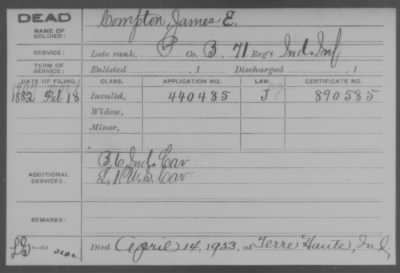 DEAD
NAME OF SOLDIER:
Compton, James E.
SERVICE:
Late rank, P Co. B, 71 Reg't Ind. Inf
TERM OF SERVICE:
Enlisted , 1 Discharged , 1
DATE OF FILING. CLASS. APPLICATION NO. LAW. CERTIFICATE NO.
1882 Feb 18 Invalid, 440485 J 890585
Widow,
Minor,
ADDITIONAL SERVICES:
B. 6 Ind. Cav
Cav
REMARKS:
Died April 14, 1933, at Terre Haute, Ind